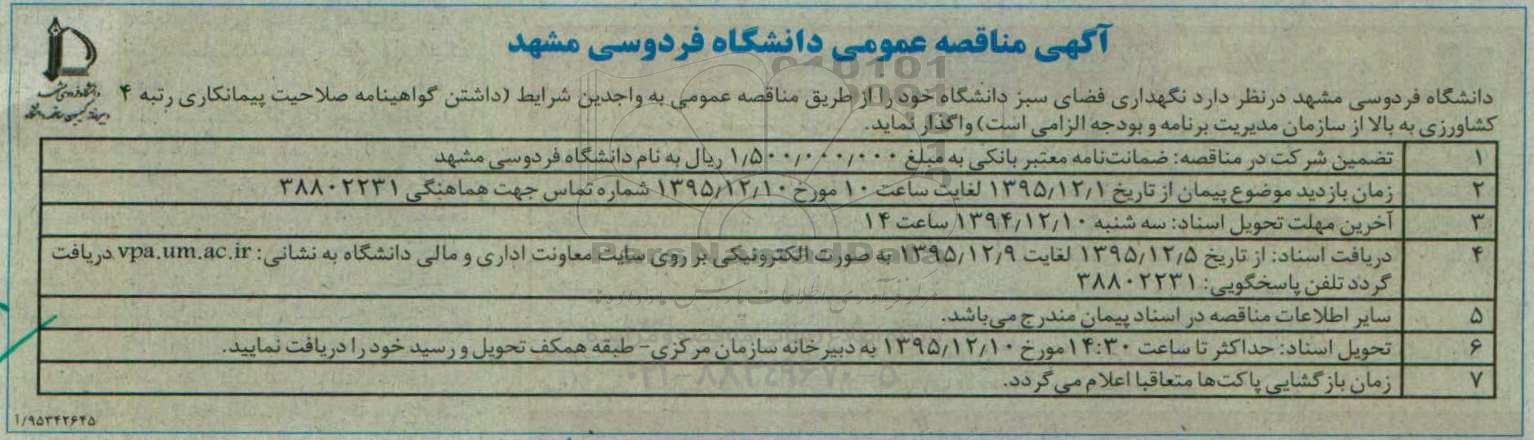 آگهی مناقصه عمومی دانشگاه فردوسی مشهد
دانشگاه فردوسی مشهد درنظر دارد نگهداری فضای سبز دانشگاه خود را از طریق مناقصه عمومی به واجدین شرایط (داشتن گواهینامه صلاحیت پیمانکاری رتبه ۴
کشاورزی به بالا از سازمان مدیریت برنامه و بودجه الزامی است) واگذار نماید.
۱ تضمین شرکت در مناقصه: ضمانت‌نامه معتبر بانکی به مبلغ ۱٫۵۰۰٫۰۰۰٫۰۰۰ ریال به نام دانشگاه فردوسی مشهد
۲ زمان بازدید موضوع پیمان از تاریخ ۱۳۹۵/۱۲/۱ لغایت ساعت ۱۰ مورخ ۱۳۹۵/۱۲/۱۰ شماره تماس جهت هماهنگی ۳۸۸۰۲۲۳۱
۳ آخرین مهلت تحویل اسناد: سه شنبه ۱۳۹۴/۱۲/۱۰ ساعت ۱۴
۴ دریافت اسناد: از تاریخ ۱۳۹۵/۱۲/۵ لغایت ۱۳۹۵/۱۲/۹ به صورت الکترونیکی بر روی سایت معاونت اداری و مالی دانشگاه به نشانی: vpa.um.ac.ir دریافت
گردد تلفن پاسخگویی: ۳۸۸۰۲۲۳۱
۵ سایر اطلاعات مناقصه در اسناد پیمان مندرج می‌باشد.
۶ تحویل اسناد: حداکثر تا ساعت ۱۴:۳۰ مورخ ۱۳۹۵/۱۲/۱۰ به دبیرخانه سازمان مرکزی- طبقه همکف تحویل و رسید خود را دریافت نمایید.
۷ زمان بازگشایی پاکت‌ها متعاقبا اعلام می‌گردد.
۱/۹۵۳۴۲۶۴۵